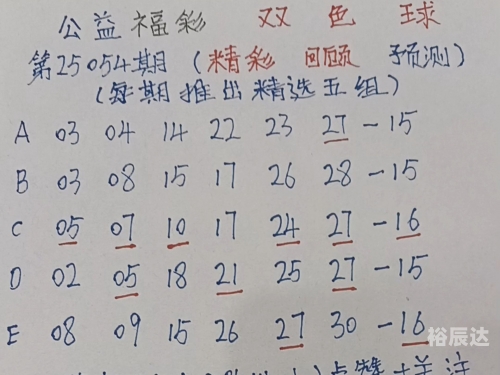 公益福彩 双色球
第25054期(精彩回顾 预测)
(每期推出精选五组)
A 03 04 14 22 23 27-15
B 03 08 15 17 26 28-15
C 05 07 10 17 24 27-16
D 02 05 18 21 25 27-15
E 08 09 15 26 27 30-16
裕辰达
点赞+关注